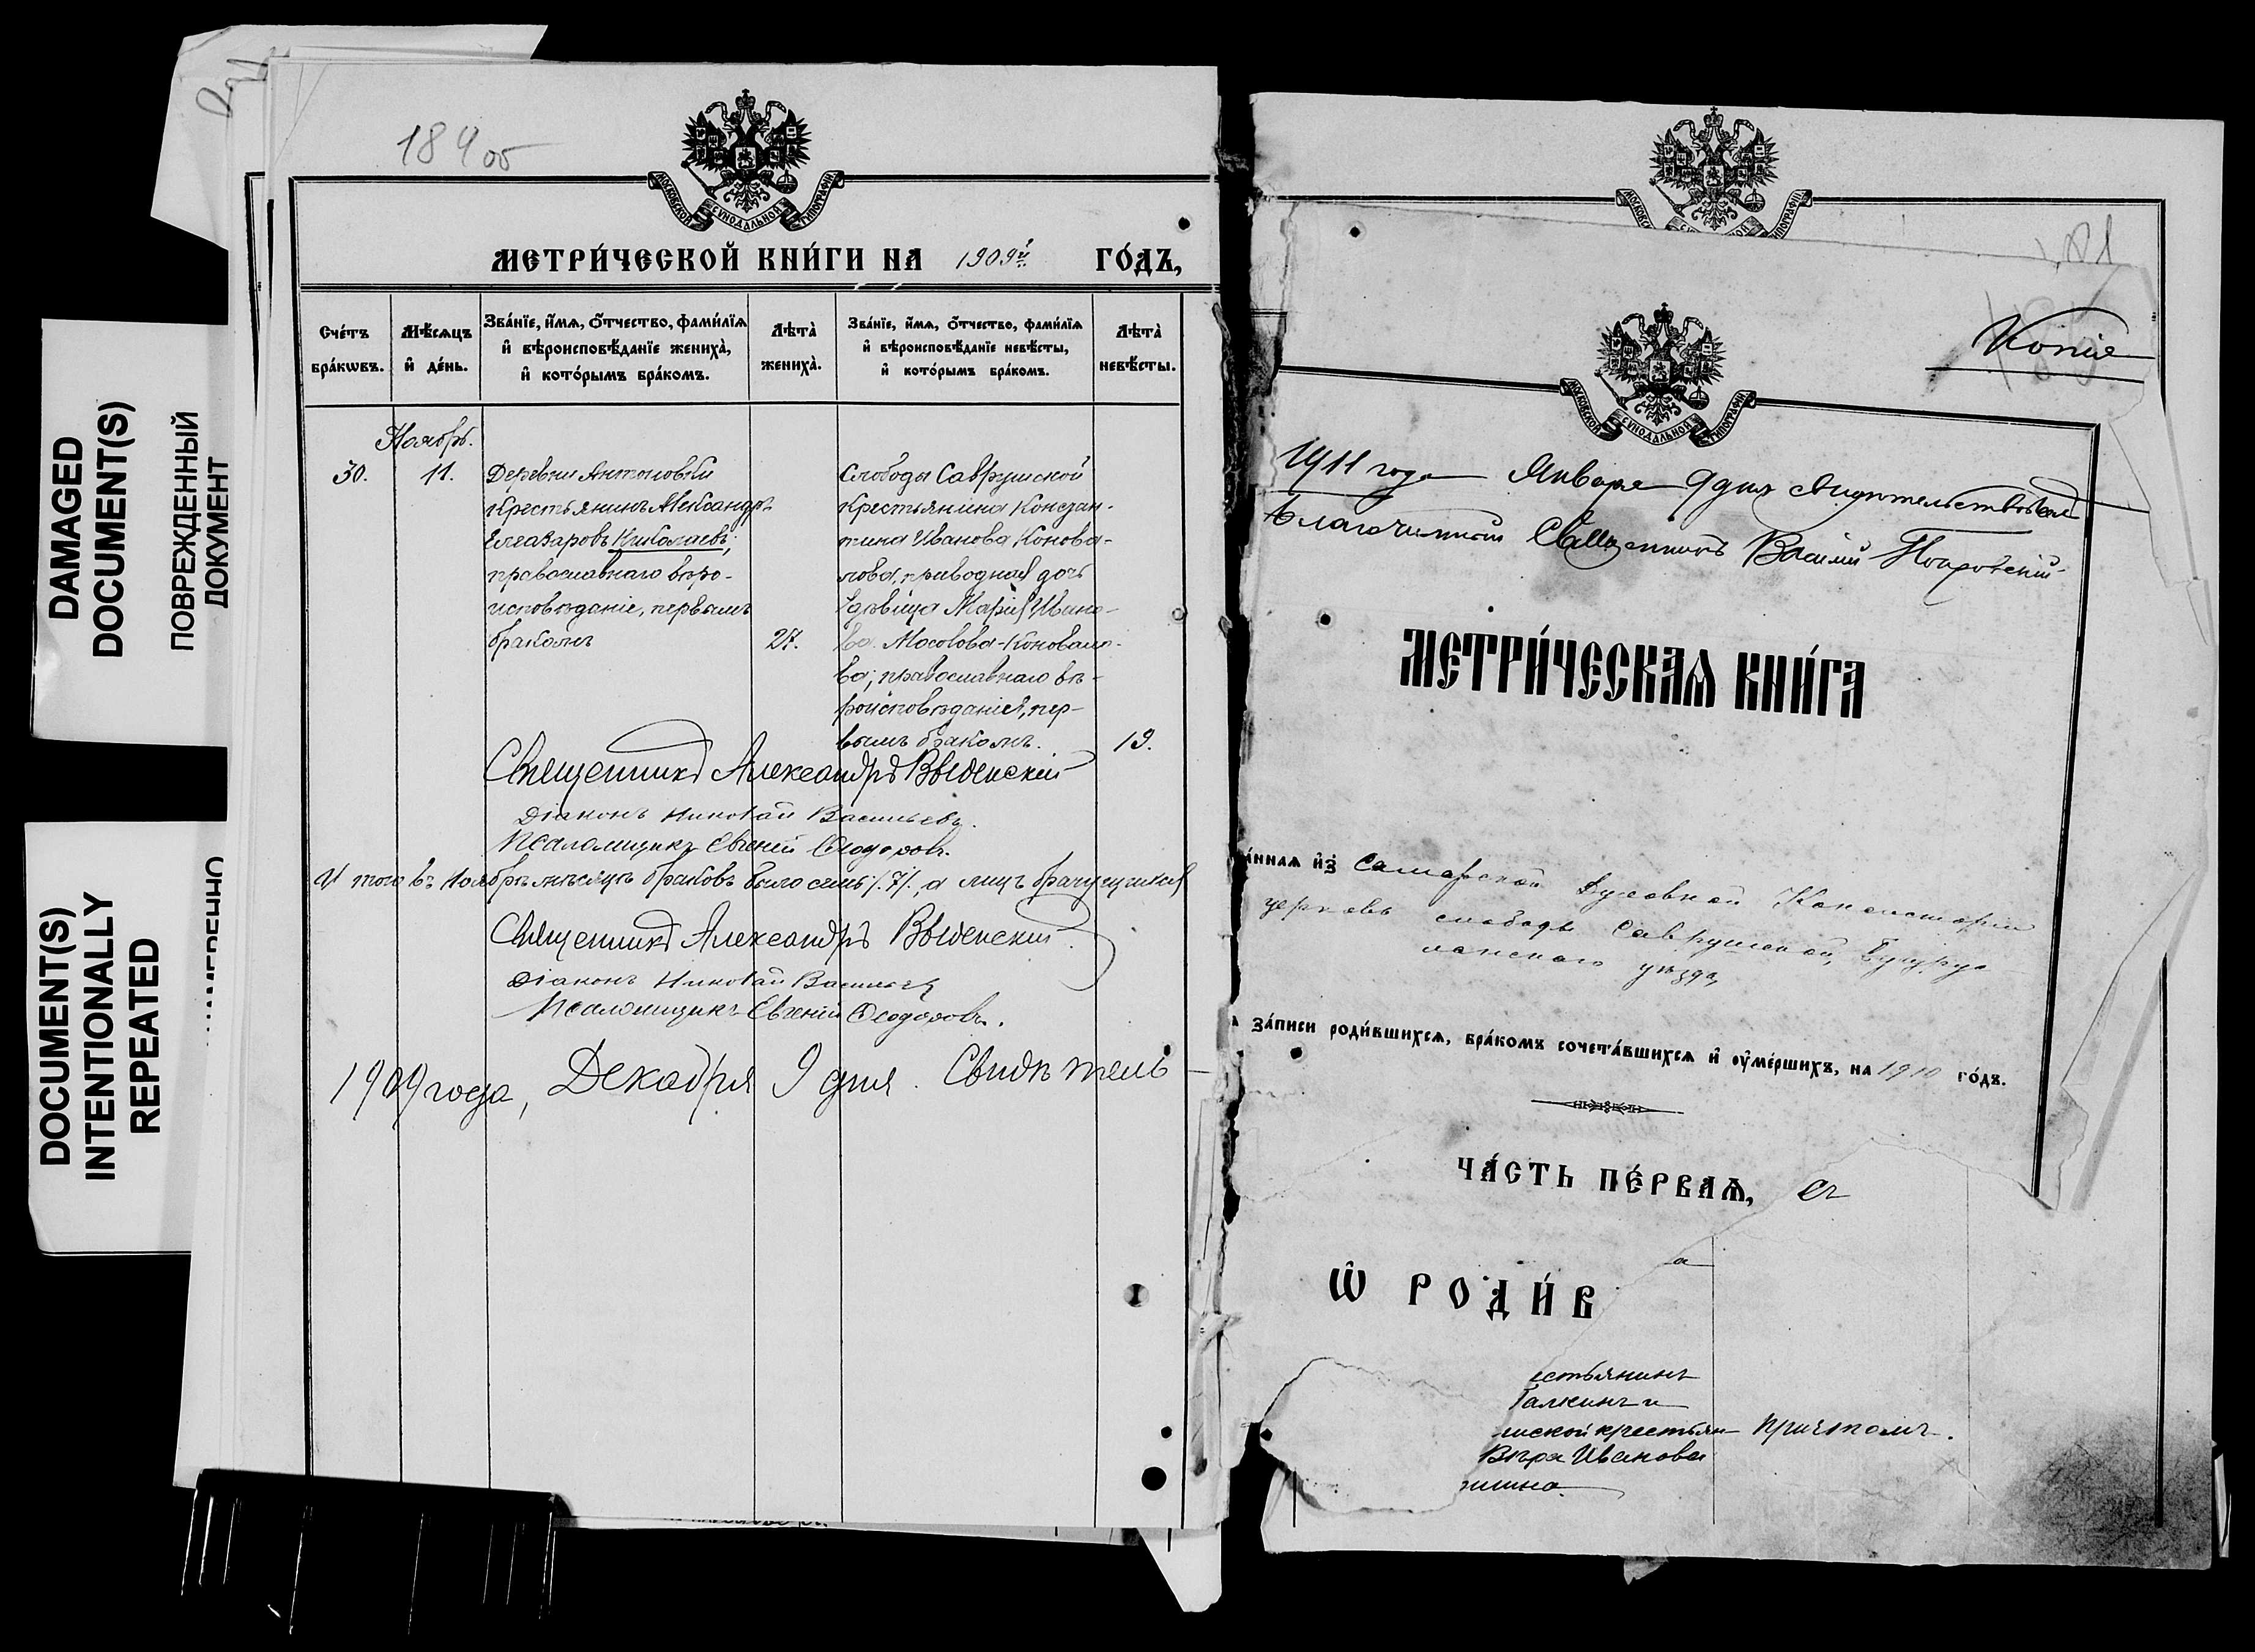 DAMAGED
DOCUMENT(S)
ПОВРЕЖДЕННЫЙ
ДОКУМЕНТ
DOCUMENT(S)
INTENTIONALLY
REPEATED
184 об
МОСКОВСКОЙ СѴНОДАЛЬНОЙ ТИПОГРАФІИ
МЕТРИ́ЧЕСКОЙ КНИ́ГИ НА 1909й ГО́ДЪ,
Сче́тъ бра́кѡвъ.
Мѣ́сѧцъ и҆ де́нь.
Зва́нїе, и҆́мѧ, ѻ҆́тчество, фами́лїѧ и҆ вѣроисповѣ́данїе жениха̀, и҆ кото́рымъ бра́комъ.
Лѣта̀ жениха̀.
Зва́нїе, и҆́мѧ, ѻ҆́тчество, фами́лїѧ и҆ вѣроисповѣ́данїе невѣ́сты, и҆ кото́рымъ бра́комъ.
Лѣта̀ невѣ́сты.
Ноябрь.
30. 11.
Деревни Антоновки
крестьянинъ Александръ
Елеазаровъ Николаевъ;
православнаго вѣро-
исповѣданіе, первымъ
бракомъ
27.
Слободы Саврушской
крестьянина Констан-
тина Иванова Конова-
лова, приводная дочь
Марія Ивано-
ва Мосолова-Коновало-
ва; православнаго вѣ-
роисповѣданія, пер-
вымъ бракомъ.
19.
Священникъ Александръ Введенскій
Діаконъ Николай Васильевъ.
Псаломщикъ Евгеній Ѳеодоровъ.
Итого въ Ноябрѣ мѣсяцѣ браковъ было семь /.7/., а лицъ брачущихся
Священникъ Александръ Введенскій
Діаконъ Николай Васильевъ
Псаломщикъ Евгеній Ѳеодоровъ.
1909 года, Декабря 9 дня. Свидѣтель
МОСКОВСКОЙ СѴНОДАЛЬНОЙ ТИПОГРАФІИ
181
Копія
МОСКОВСКОЙ СѴНОДАЛЬНОЙ ТИПОГРАФІИ
1911 года Января 9 дня свидѣтельствовалъ
Благочинный Священникъ Василій Покровскій
МЕТРИ́ЧЕСКАѦ КНИ́ГА
а́ннаѧ и҆з̾ Самарской Духовной Консисторіи
церковь слободы Саврушской, Бугурус
ланскаго уѣзда,
за́писи роди́вшихсѧ, бра́комъ сочета́вшихсѧ и҆ ᲂу҆ме́ршихъ, на 1910 го́дъ.
ЧА́СТЬ ПЕ́РВАѦ,
Ѡ҆ РОДИ́В
естьянинъ
Галкинъ и
шской крестьян-
Причтомъ.
Вѣра Иванова
шина.